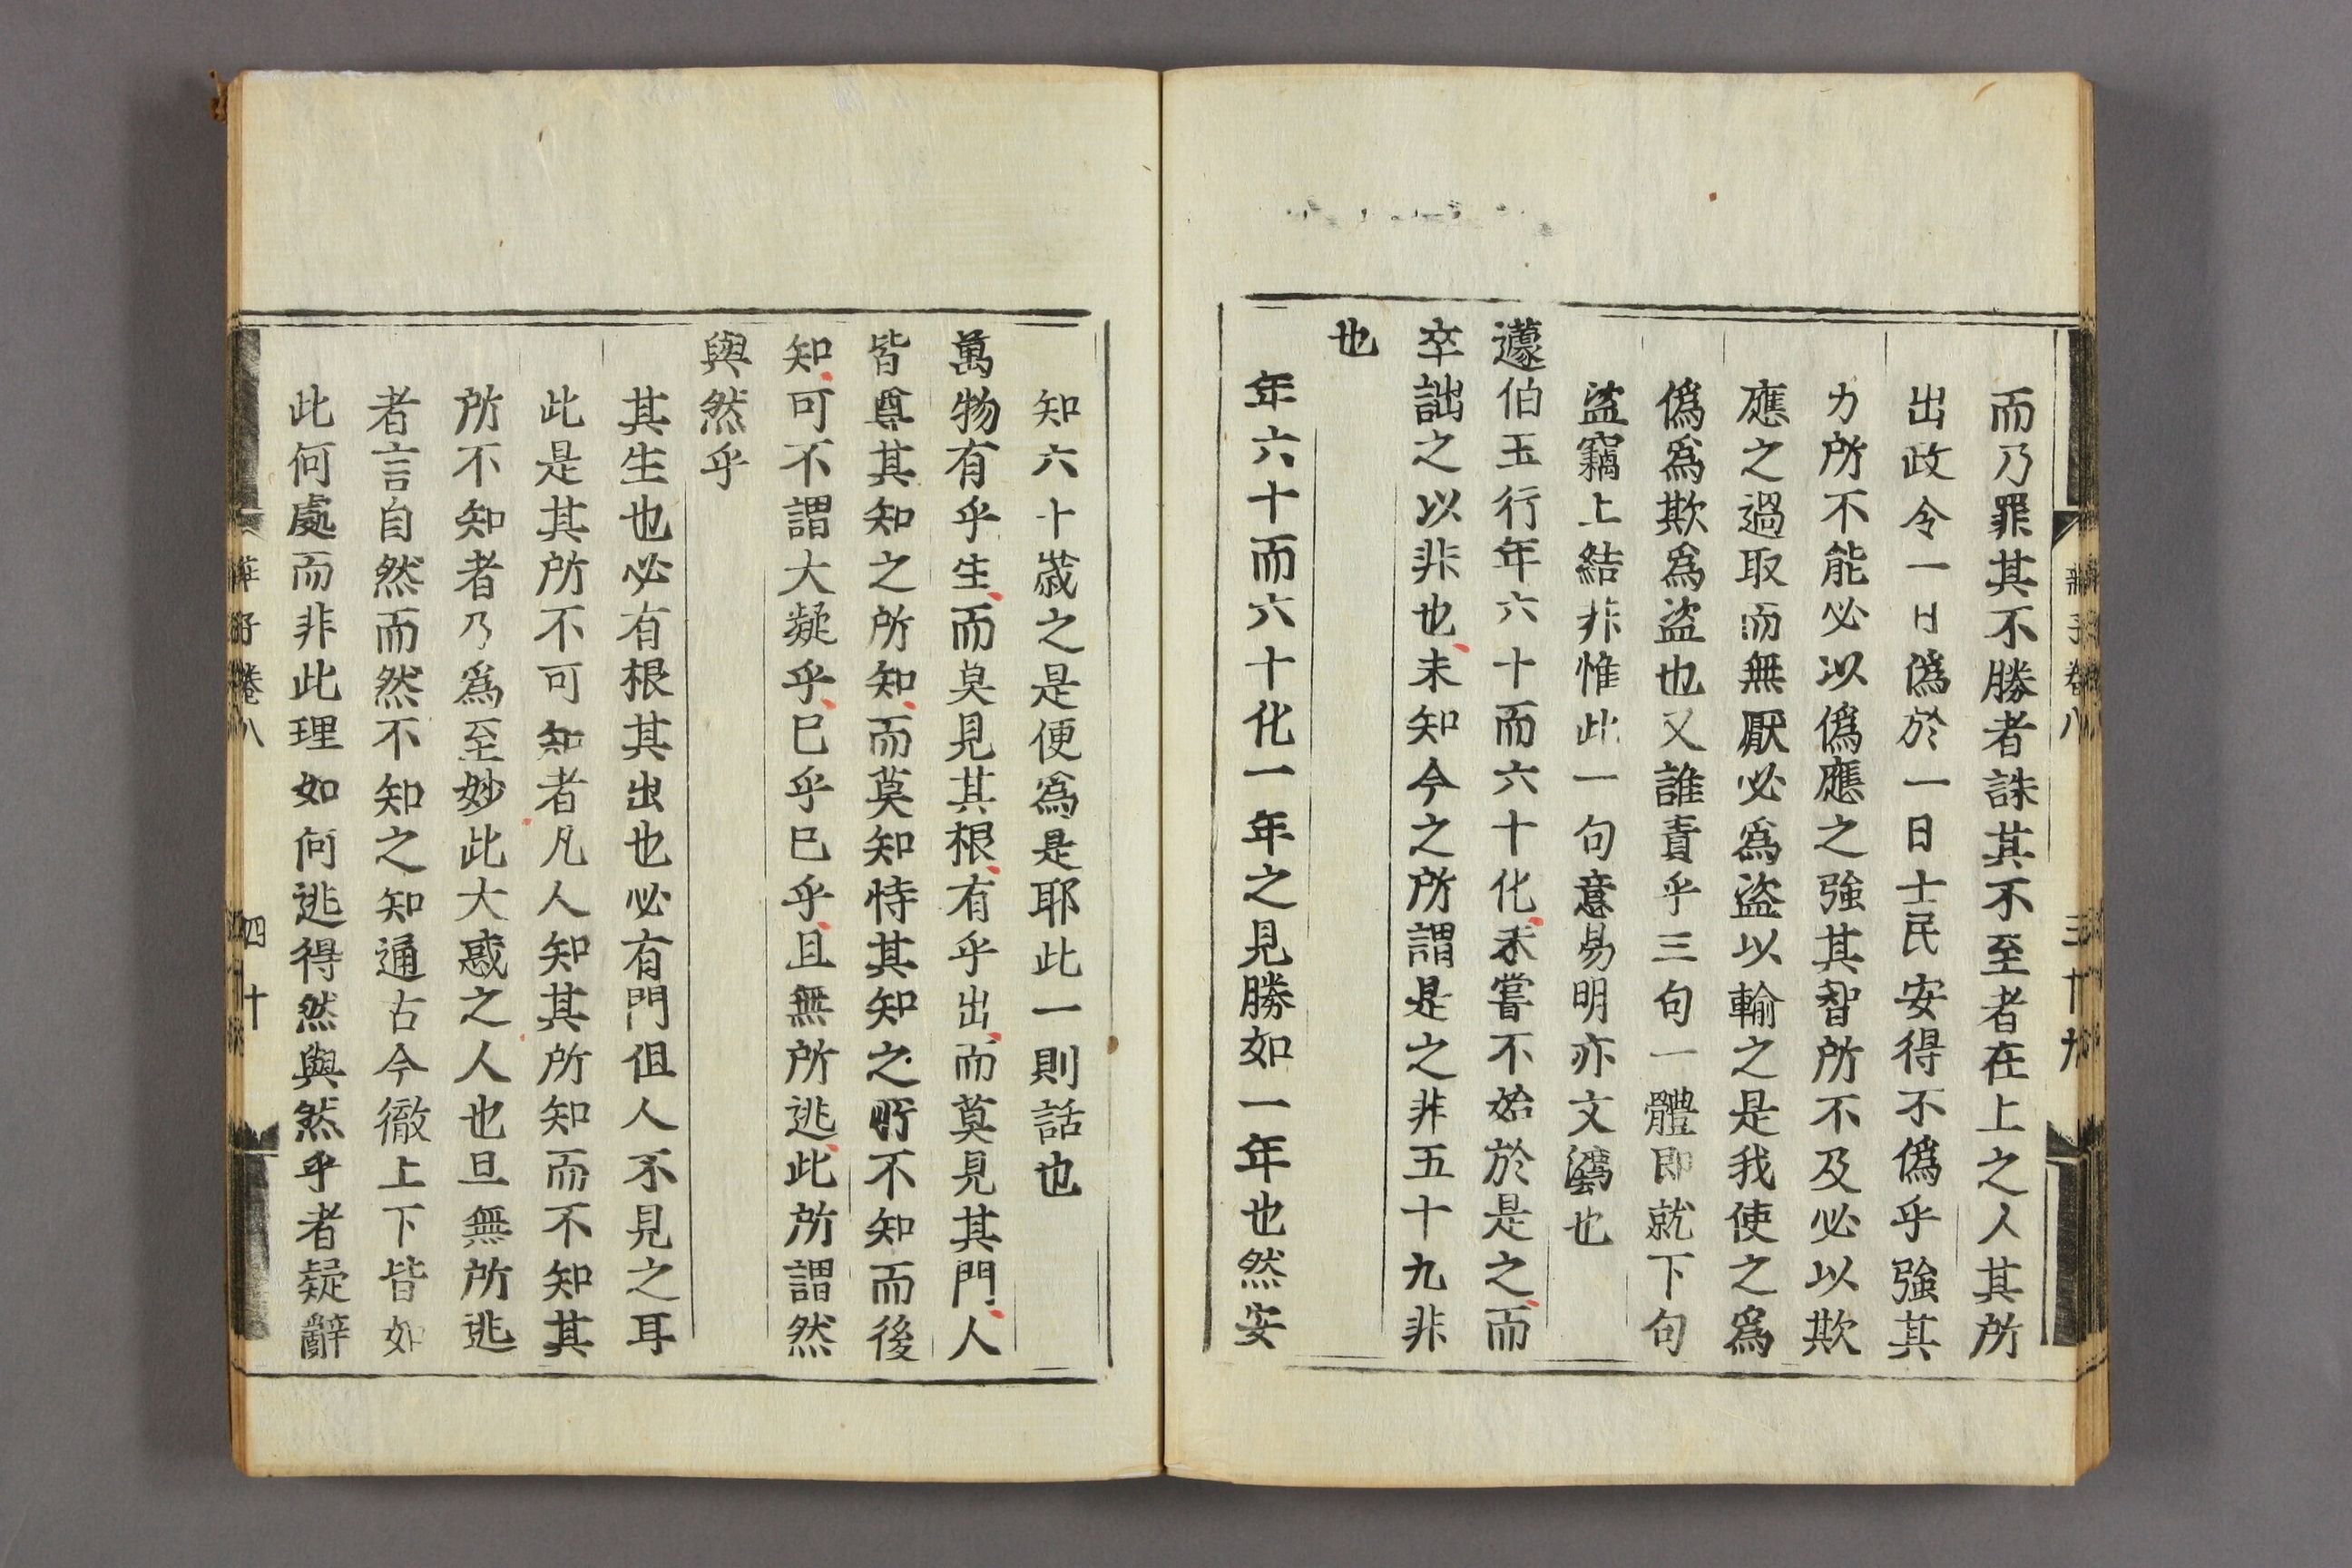 而乃罪其不勝者誅其不至者在上之人其所
出政令一日僞於一日士民安得不僞乎強其
力所不能必以僞應之強其智所不及必以欺
應之過取而無厭必爲盜以輸之是我使之爲
僞爲欺爲盜也又誰責乎三句一體即就下句
盜竊上結非惟此一句意易明亦文瀾也
蘧伯玉行年六十而六十化未嘗不始於是之而
卒詘之以非也未知今之所謂是之非五十九非
也
年六十而六十化一年之見勝如一年也然安
知六十歲之是便爲是耶此一則話也
萬物有乎生而莫見其根有乎出而莫見其門人
皆尊其知之所知而莫知恃其知之所不知而後
知可不謂大疑乎已乎已乎且無所逃此所謂然
與然乎
其生也必有根其出也必有門但人不見之耳
此是其所不可知者凡人知其所知而不知其
所不知者乃爲至妙此大惑之人也且無所逃
者言自然而然不知之知通古今徹上下皆如
此何處而非此理如何逃得然與然乎者疑辭
莊子卷八 三十九
莊子卷八 四十